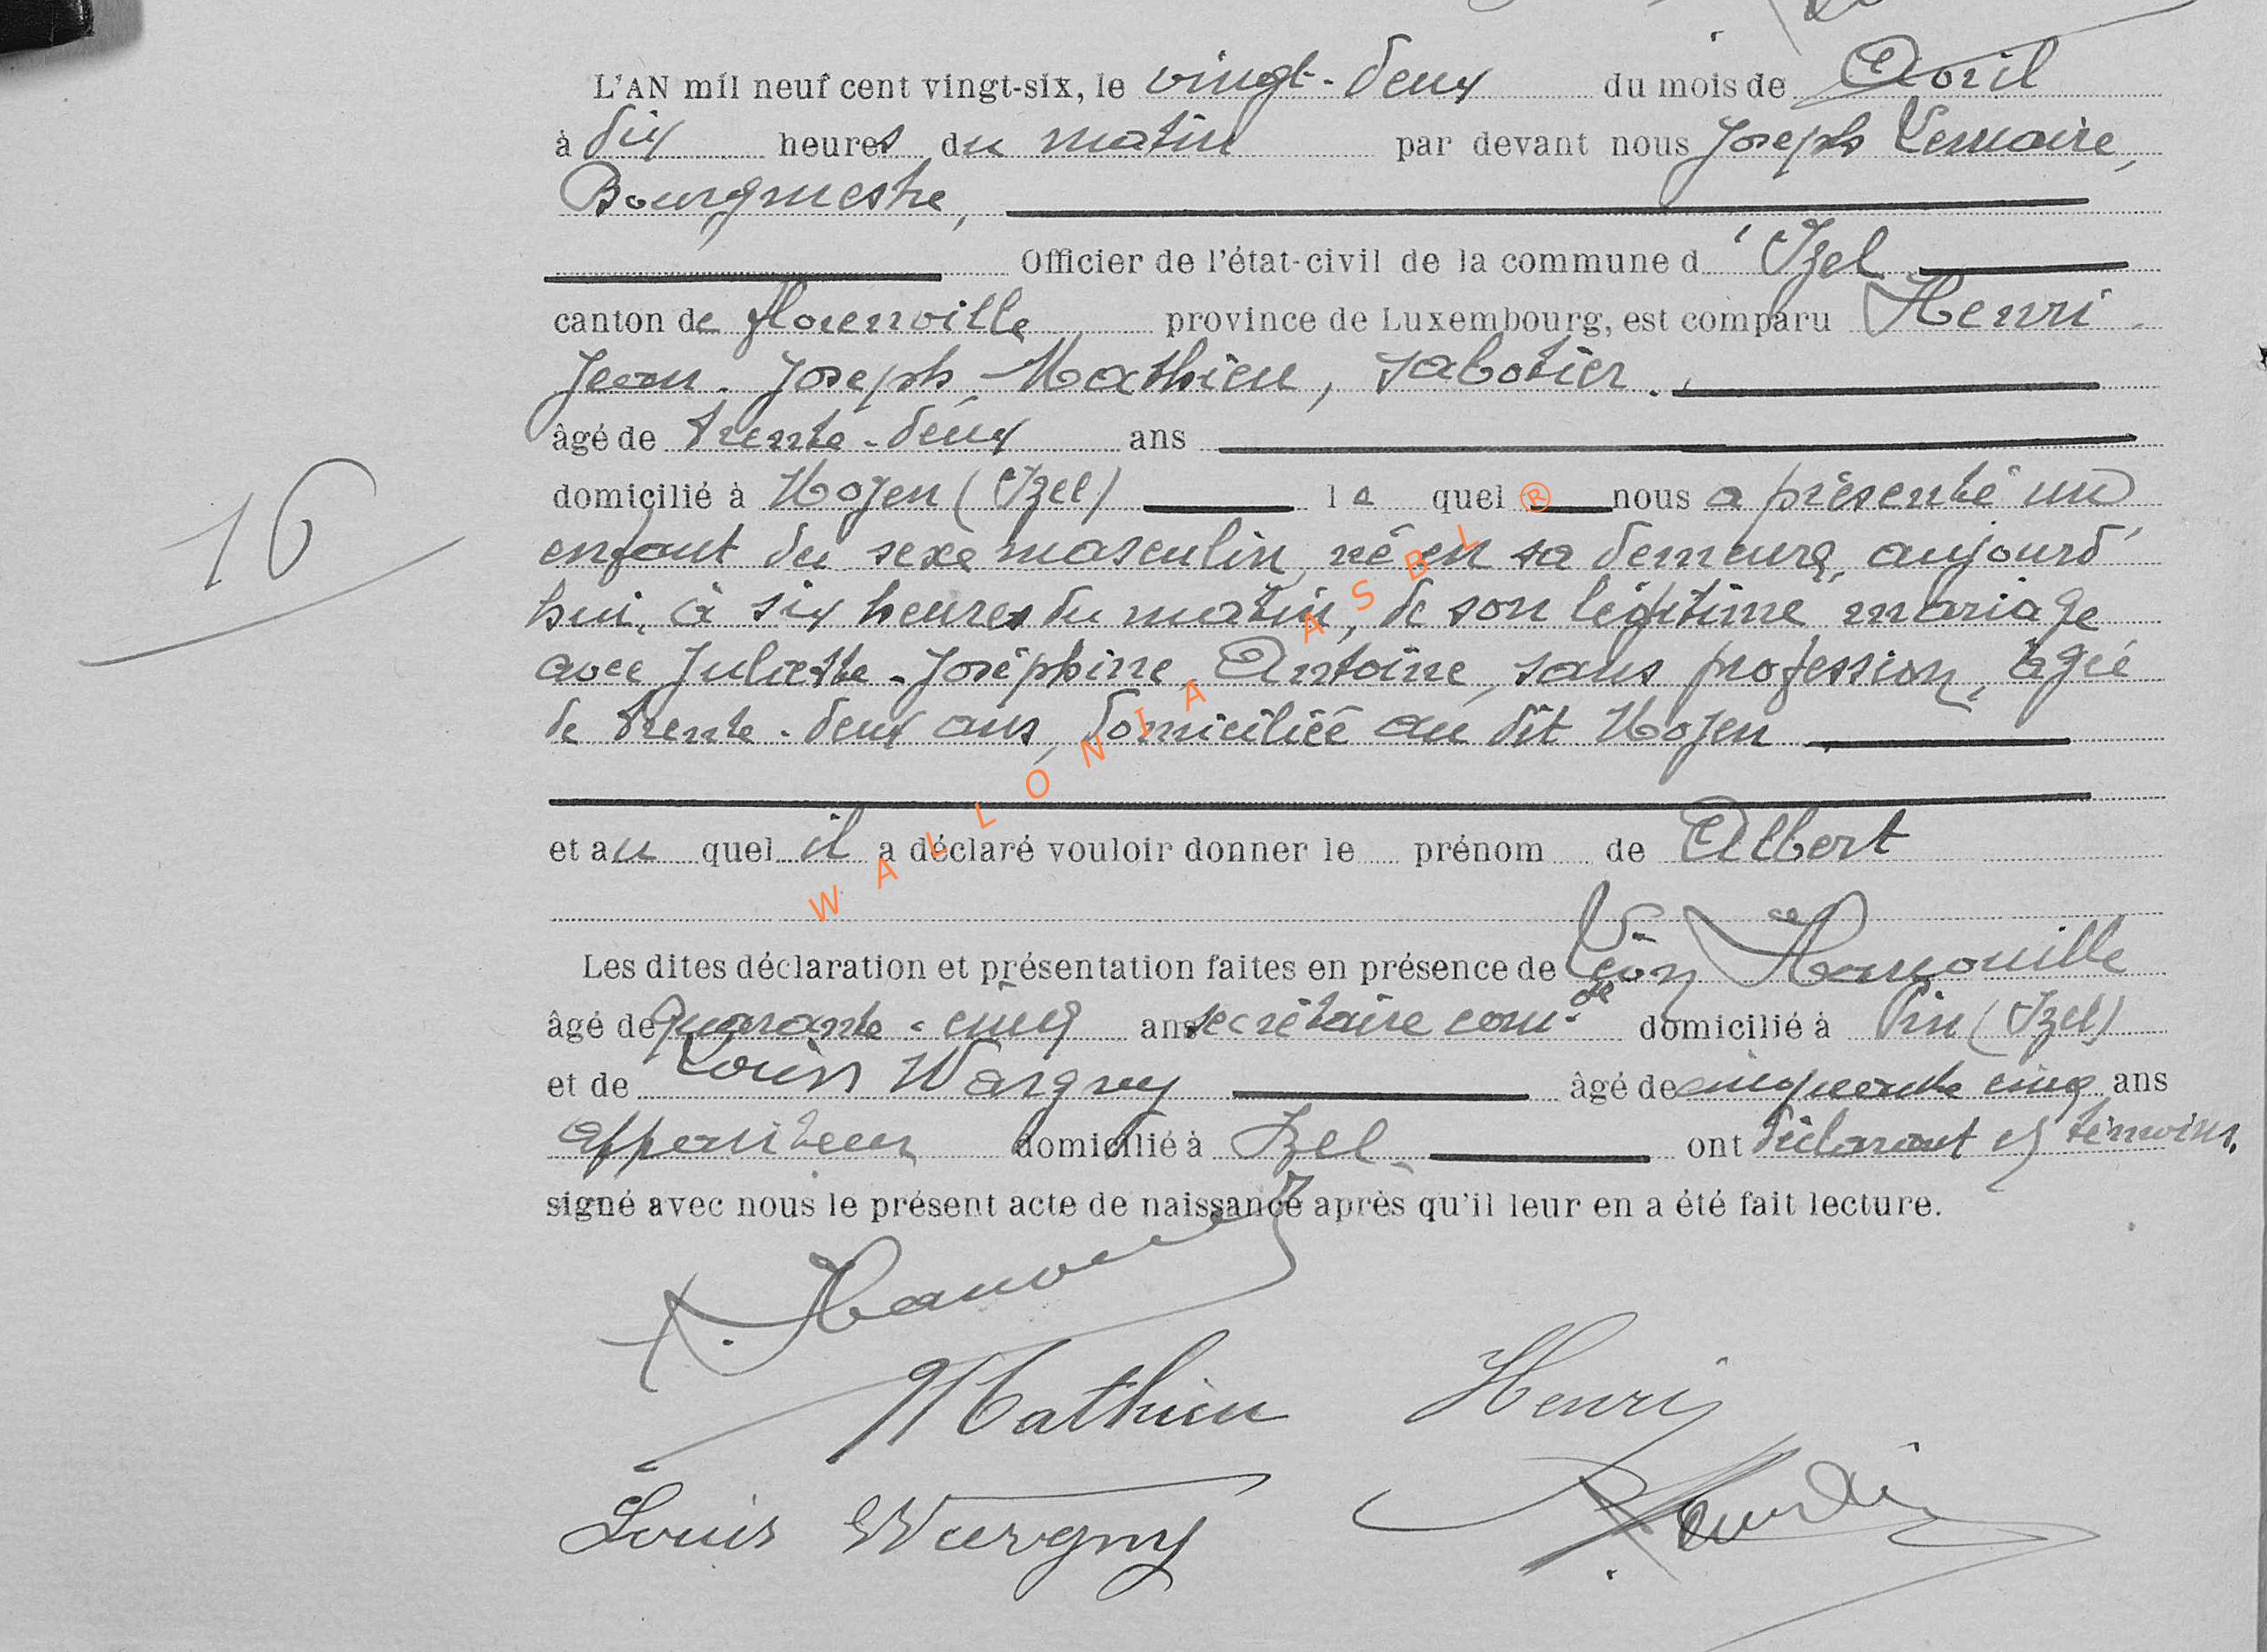 L'AN mil neuf cent vingt-six, le vingt-deux du mois de Avril
à dix heures du matin par devant nous Joseph Lemaire,
Bourgmestre,
Officier de l'état-civil de la commune d'Izel
canton de Florenville province de Luxembourg, est comparu Henri-
Jean-Joseph Mathieu, sabotier,
âgé de trente-deux ans
domicilié à Moyen (Izel) le quel nous a présenté un
enfant du sexe masculin, né en sa demeure, aujourd'
hui, à six heures du matin, de son légitime mariage
avec Juliette-Joséphine Antoine, sans profession, âgée
de trente-deux ans, domiciliée au dit Moyen
et au quel il a déclaré vouloir donner le prénom de Albert
Les dites déclaration et présentation faites en présence de Léon
âgé de quarante-cinq ans secrétaire com.al domicilié à Pin (Izel)
et de Louis Wargny âgé de cinquante cinq ans
appariteur domicilié à Izel ont déclarant et témoins,
signé avec nous le présent acte de naissance après qu'il leur en a été fait lecture.
Mathieu Henri
Louis Wargny
16
WALLONIA ASBL ®